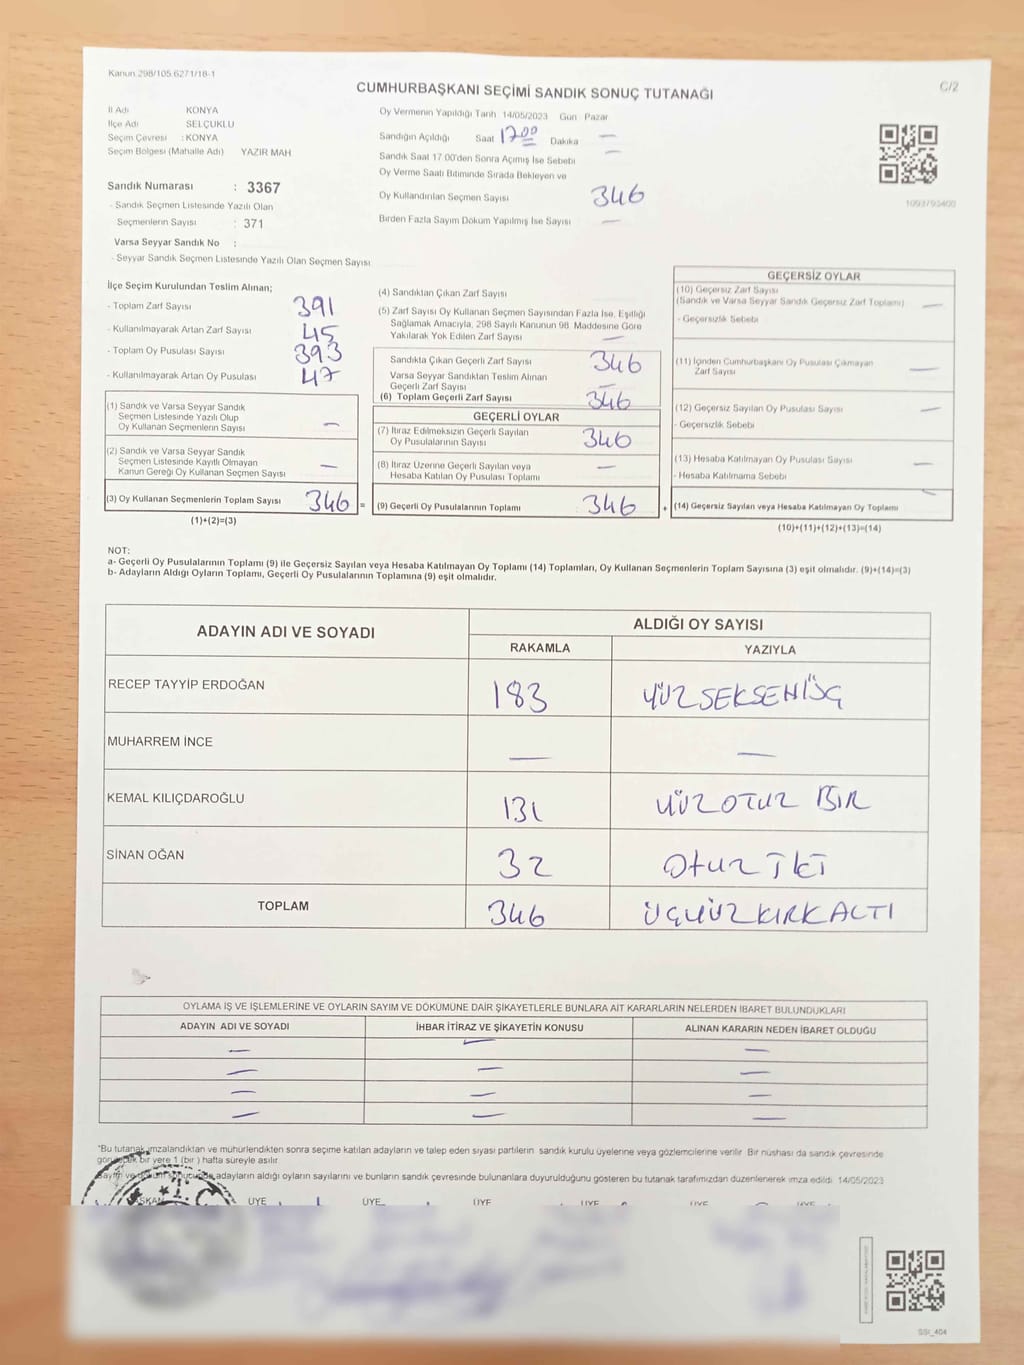 Kanun 298/105.6271/18-1
CUMHURBAŞKANI SEÇİMİ SANDIK SONUÇ TUTANAĞI
C/2
İl Adı KONYA
İlçe Adı SELÇUKLU
Seçim Çevresi : KONYA
Seçim Bölgesi (Mahalle Adı) YAZIR MAH
Sandık Numarası : 3367
- Sandık Seçmen Listesinde Yazılı Olan
Seçmenlerin Sayısı : 371
Varsa Seyyar Sandık No :
- Seyyar Sandık Seçmen Listesinde Yazılı Olan Seçmen Sayısı
Oy Vermenin Yapıldığı Tarih 14/05/2023 Gün Pazar
Sandığın Açıldığı Saat 17 00 Dakika —
Sandık Saat 17.00'den Sonra Açımış İse Sebebi —
Oy Verme Saati Bitiminde Sırada Bekleyen ve
Oy Kullandırılan Seçmen Sayısı 346
Birden Fazla Sayım Döküm Yapılmış İse Sayısı —
1093793400
İlçe Seçim Kurulundan Teslim Alınan;
- Toplam Zarf Sayısı 391
- Kullanılmayarak Artan Zarf Sayısı 45
- Toplam Oy Pusulası Sayısı 393
- Kullanılmayarak Artan Oy Pusulası 47
(1) Sandık ve Varsa Seyyar Sandık
Seçmen Listesinde Yazılı Olup
Oy Kullanan Seçmenlerin Sayısı —
(2) Sandık ve Varsa Seyyar Sandık
Seçmen Listesinde Kayıtlı Olmayan
Kanun Gereği Oy Kullanan Seçmen Sayısı —
(3) Oy Kullanan Seçmenlerin Toplam Sayısı 346 =
(1)+(2)=(3)
(4) Sandıktan Çıkan Zarf Sayısı
(5) Zarf Sayısı Oy Kullanan Seçmen Sayısından Fazla İse, Eşitliği
Sağlamak Amacıyla, 298 Sayılı Kanunun 98. Maddesine Göre
Yakılarak Yok Edilen Zarf Sayısı —
Sandıkta Çıkan Geçerli Zarf Sayısı 346
Varsa Seyyar Sandıktan Teslim Alınan
Geçerli Zarf Sayısı —
(6) Toplam Geçerli Zarf Sayısı 346
GEÇERLİ OYLAR
(7) İtiraz Edilmeksizin Geçerli Sayılan
Oy Pusulalarının Sayısı 346
(8) İtiraz Üzerine Geçerli Sayılan veya
Hesaba Katılan Oy Pusulası Toplamı —
(9) Geçerli Oy Pusulalarının Toplamı 346 +
GEÇERSİZ OYLAR
(10) Geçersiz Zarf Sayısı
(Sandık ve Varsa Seyyar Sandık Geçersiz Zarf Toplamı) —
- Geçersizlik Sebebi
(11) İçinden Cumhurbaşkanı Oy Pusulası Çıkmayan
Zarf Sayısı —
(12) Geçersiz Sayılan Oy Pusulası Sayısı —
- Geçersizlik Sebebi
(13) Hesaba Katılmayan Oy Pusulası Sayısı —
- Hesaba Katılmama Sebebi
(14) Geçersiz Sayılan veya Hesaba Katılmayan Oy Toplamı —
(10)+(11)+(12)+(13)=(14)
NOT:
a- Geçerli Oy Pusulalarının Toplamı (9) ile Geçersiz Sayılan veya Hesaba Katılmayan Oy Toplamı (14) Toplamları, Oy Kullanan Seçmenlerin Toplam Sayısına (3) eşit olmalıdır. (9)+(14)=(3)
b- Adayların Aldığı Oyların Toplamı, Geçerli Oy Pusulalarının Toplamına (9) eşit olmalıdır.
ADAYIN ADI VE SOYADI ALDIĞI OY SAYISI
RAKAMLA YAZIYLA
RECEP TAYYİP ERDOĞAN 183 YÜZSEKSENÜÇ
MUHARREM İNCE — —
KEMAL KILIÇDAROĞLU 131 YÜZOTUZ BİR
SİNAN OĞAN 32 OTUZ İKİ
TOPLAM 346 ÜÇYÜZKIRKALTI
OYLAMA İŞ VE İŞLEMLERİNE VE OYLARIN SAYIM VE DÖKÜMÜNE DAİR ŞİKAYETLERLE BUNLARA AİT KARARLARIN NELERDEN İBARET BULUNDUKLARI
ADAYIN ADI VE SOYADI İHBAR İTİRAZ VE ŞİKAYETİN KONUSU ALINAN KARARIN NEDEN İBARET OLDUĞU
— — —
— — —
— — —
— — —
*Bu tutanak imzalandıktan ve mühürlendikten sonra seçime katılan adayların ve talep eden siyasi partilerin sandık kurulu üyelerine veya gözlemcilerine verilir. Bir nüshası da sandık çevresinde
görülecek bir yere 1 (bir) hafta süreyle asılır
Sayım ve döküm sonucunda adayların aldığı oyların sayılarını ve bunların sandık çevresinde bulunanlara duyurulduğunu gösteren bu tutanak tarafımızdan düzenlenerek imza edildi. 14/05/2023
BAŞKAN ÜYE ÜYE ÜYE ÜYE ÜYE ÜYE
SSI_404